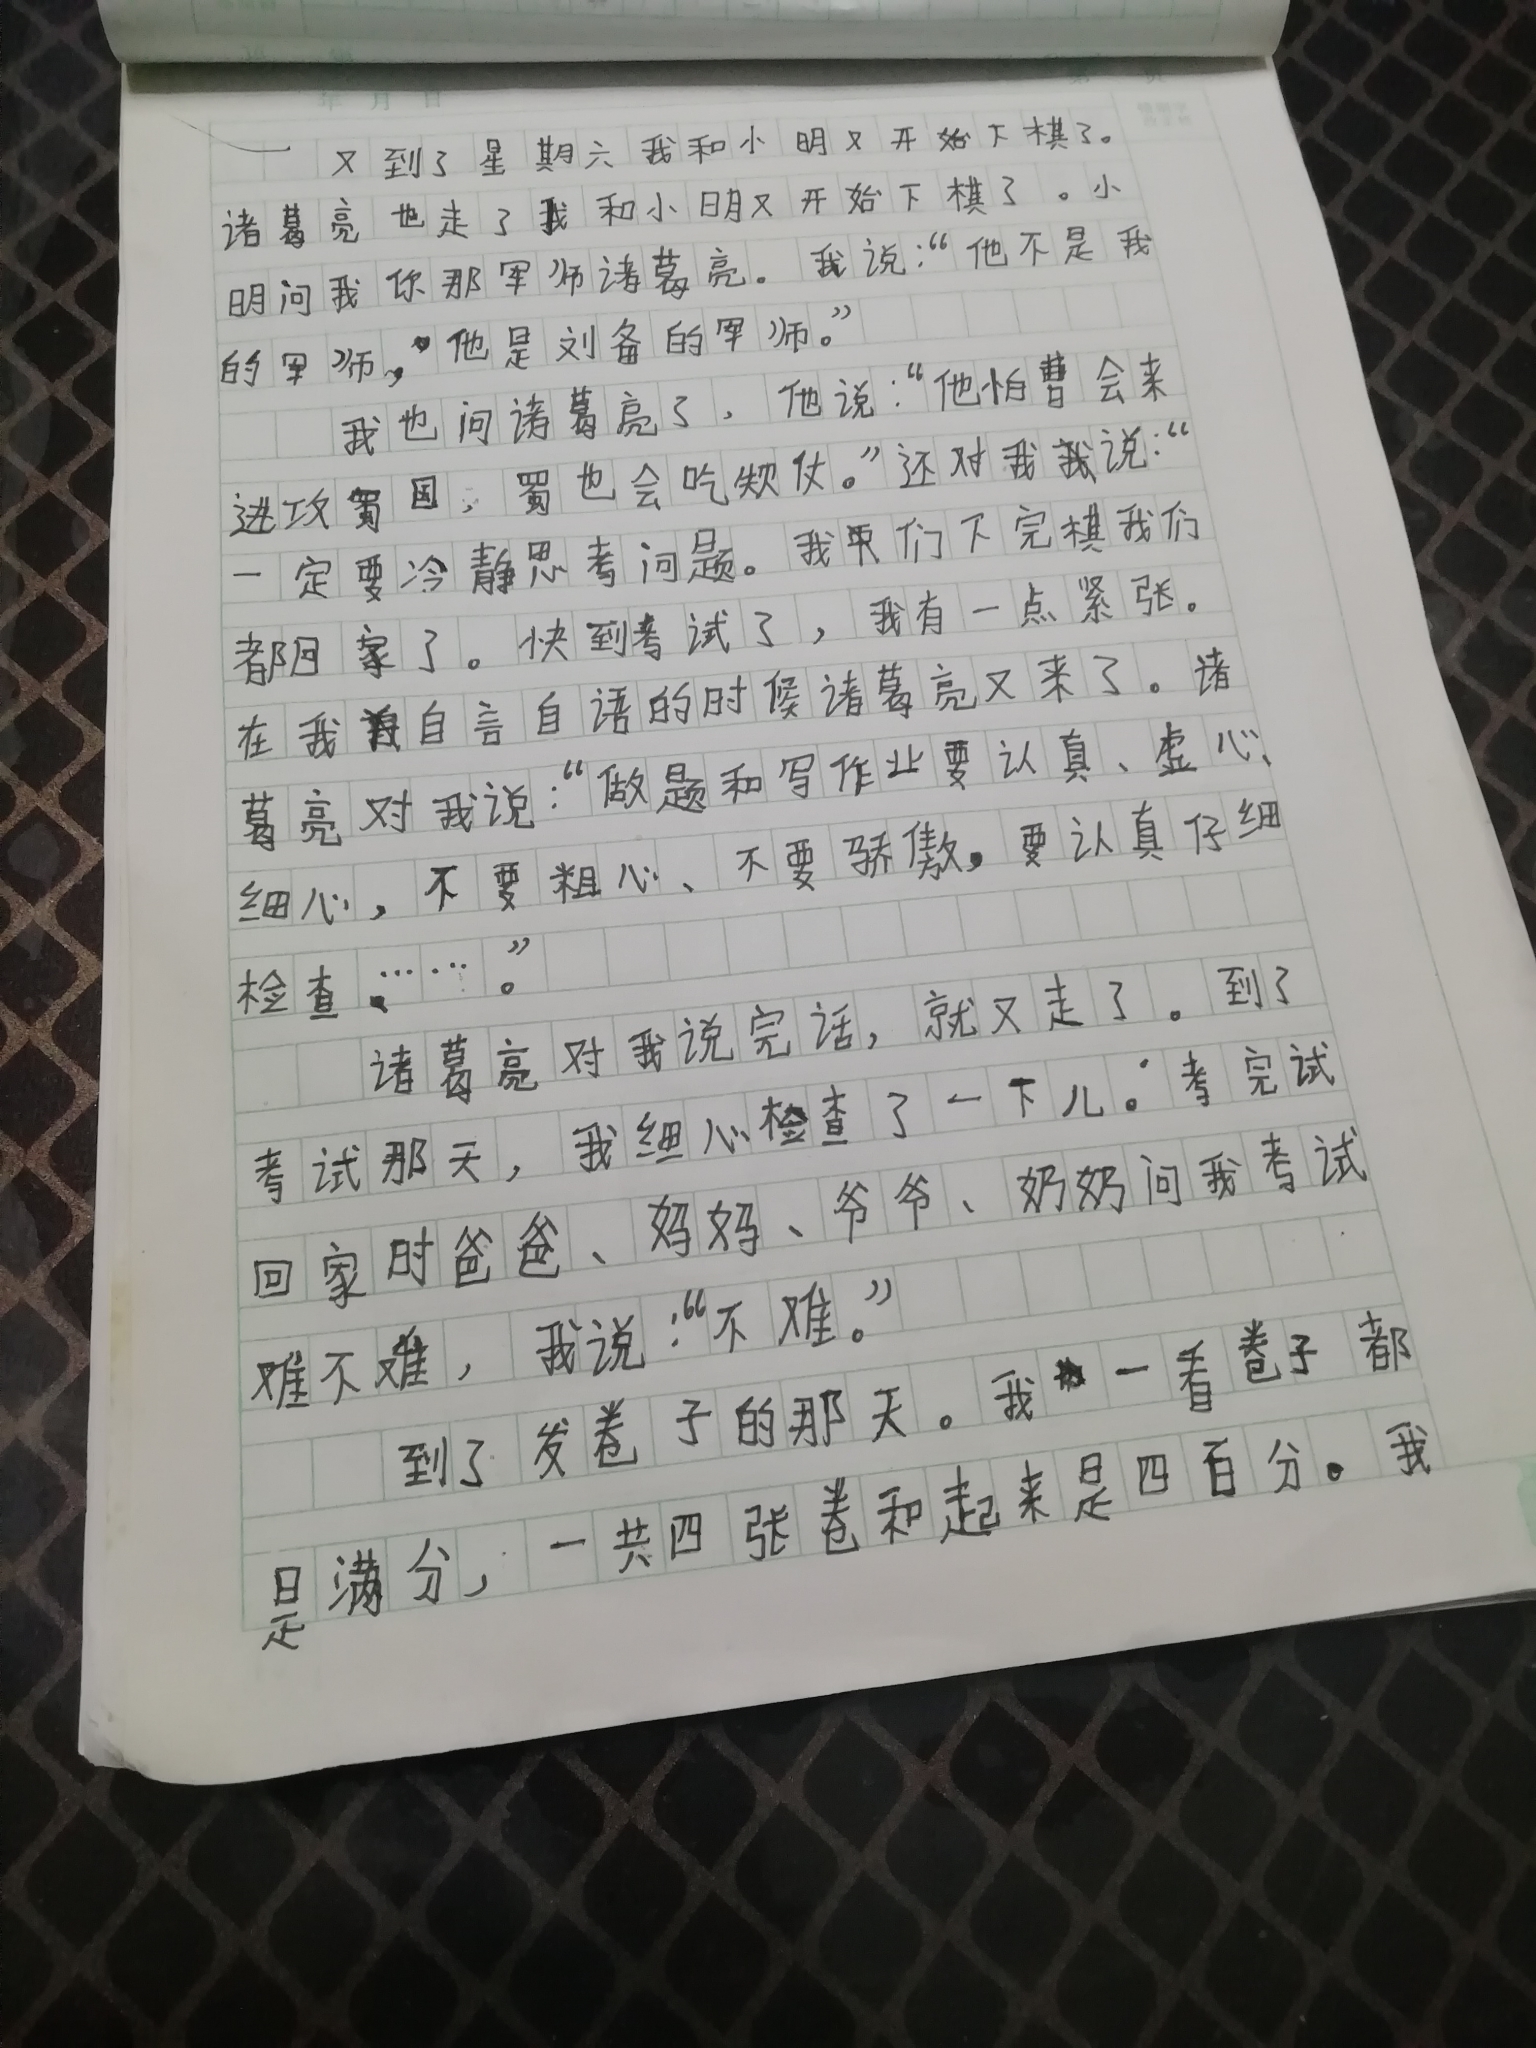 年 月 日
又到了星期六我和小明又开始下棋了。
诸葛亮也走了我和小明又开始下棋了。小
明问我你那军师诸葛亮。我说:“他不是我
的军师,他是刘备的军师。”
我也问诸葛亮了,他说:“他怕曹会来
进攻蜀国,蜀也会吃败仗。”还对我我说:“
一定要冷静思考问题。我们下完棋我们
都回家了。快到考试了,我有一点紧张。
在我自言自语的时候诸葛亮又来了。诸
葛亮对我说:“做题和写作业要认真、虚心、
细心,不要粗心、不要骄傲,要认真仔细
检查……。”
诸葛亮对我说完话,就又走了。到了
考试那天,我细心检查了一下儿。考完试
回家时爸爸、妈妈、爷爷、奶奶问我考试
难不难,我说:“不难。”
到了发卷子的那天。我一看卷子都
是满分,一共四张卷和起来是四百分。我